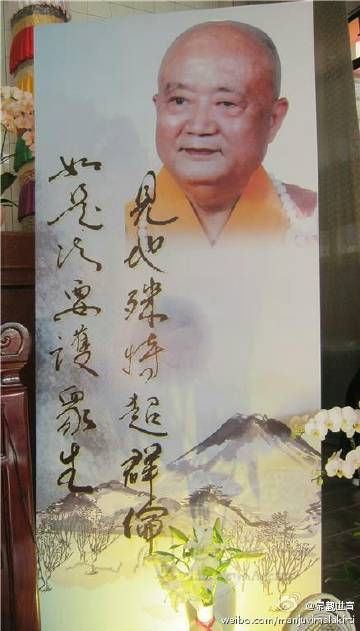 見地殊特超群倫
如是法要護眾生
weibo.com/manjuvimalakirti